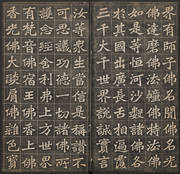 界有師子佛名聞佛名光
佛達磨佛法幢佛持法佛
如是等恒河沙數諸佛各
於其國出廣長舌相徧覆
三千大千世界說誠實言
汝等眾生當信是稱讚不
可思議功德一切諸佛所
護念經舍利弗上方世界
有梵音佛宿王佛香上佛
香光佛大燄肩佛雜色寶